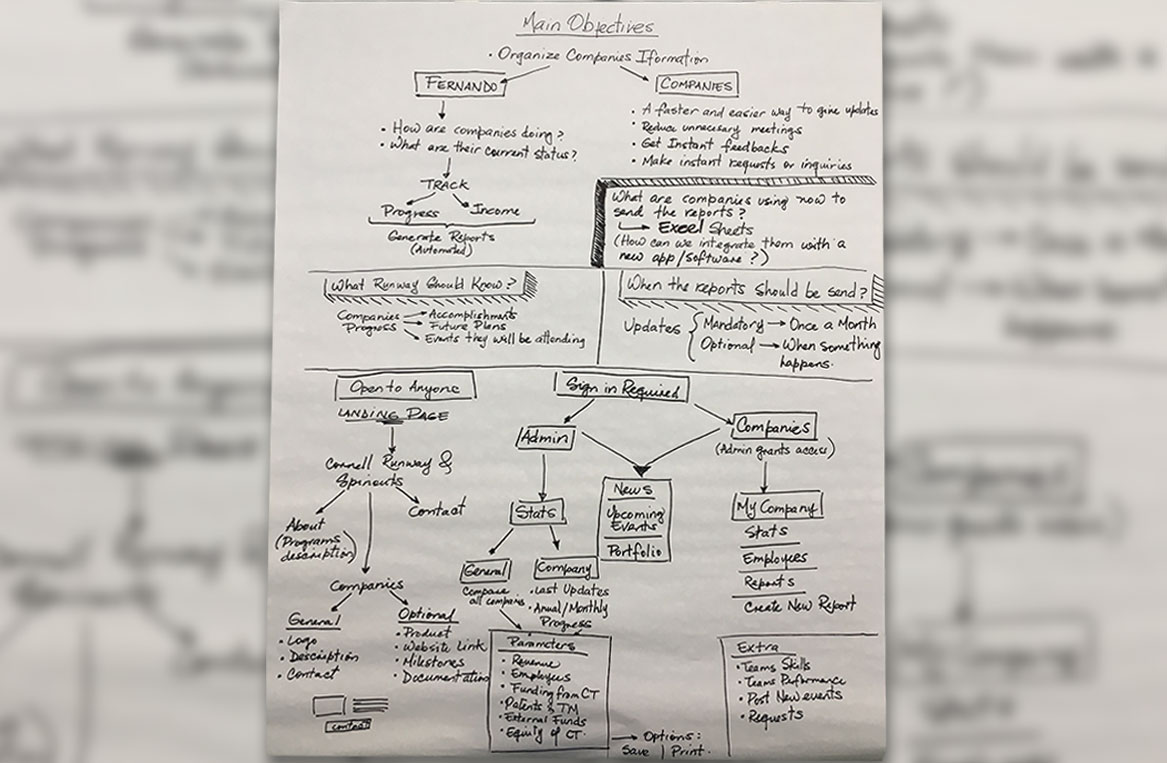 Main Objectives
• Organize Companies Iformation
FERNANDO
• How are companies doing?
• What are their current status?
TRACK
Progress Income
Generate Reports
(Automated)
COMPANIES
• A faster and easier way to give updates
• Reduce unnecesary meetings
• Get Instant feedbacks
• Make instant requests or inquiries
What are companies using now to
send the reports?
Excel Sheets
(How can we integrate them with a
new app/software?)
What Runway Should Know?
Companies
Progress
Accomplishments
Future Plans
Events they will be attending
When the reports should be send?
Updates
Mandatory → Once a Month
Optional → When something
happens.
Open to Anyone
LANDING PAGE
Cornell Runway &
Spinouts
About
(Programs
description)
Contact
Companies
General
• Logo
• Description
• Contact
Optional
• Product
• Website Link
• Milestones
• Documentation
contact
Sign in Required
Admin
Stats
General
Compare
all companies
Company
• Last Updates
• Anual/Monthly
Progress
Parameters
• Revenue
• Employees
• Funding from CT
• Patents & TM
• External Funds
• Equity of CT.
→ Options:
Save | Print.
News
Upcoming
Events
Portfolio
Companies
(Admin grants access)
My Company
Stats
Employees
Reports
Create New Report
Extra
• Teams Skills
• Teams Performance
• Post New events
• Requests